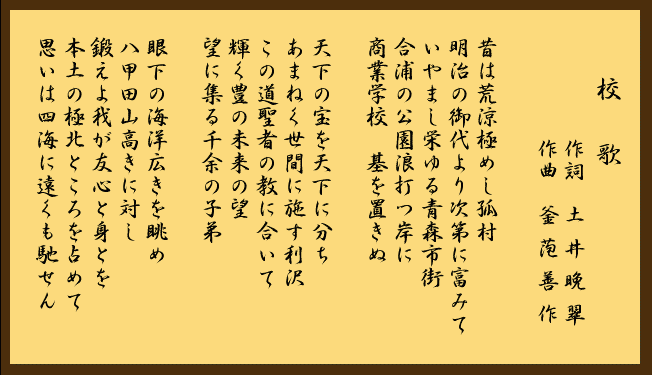 校歌
作詞 土井晩翠
作曲 釜萢善作
昔は荒涼極めし孤村
明治の御代より次第に富みて
いやまし栄ゆる青森市街
合浦の公園浪打つ岸に
商業学校 基を置きぬ
天下の宝を天下に分ち
あまねく世間に施す利沢
この道聖者の教に合いて
輝く豊の未来の望
望に集る千余の子弟
眼下の海洋広きを眺め
八甲田山高きに対し
鍛えよ我が友心と身とを
本土の極北ところを占めて
思いは四海に遠くも馳せん